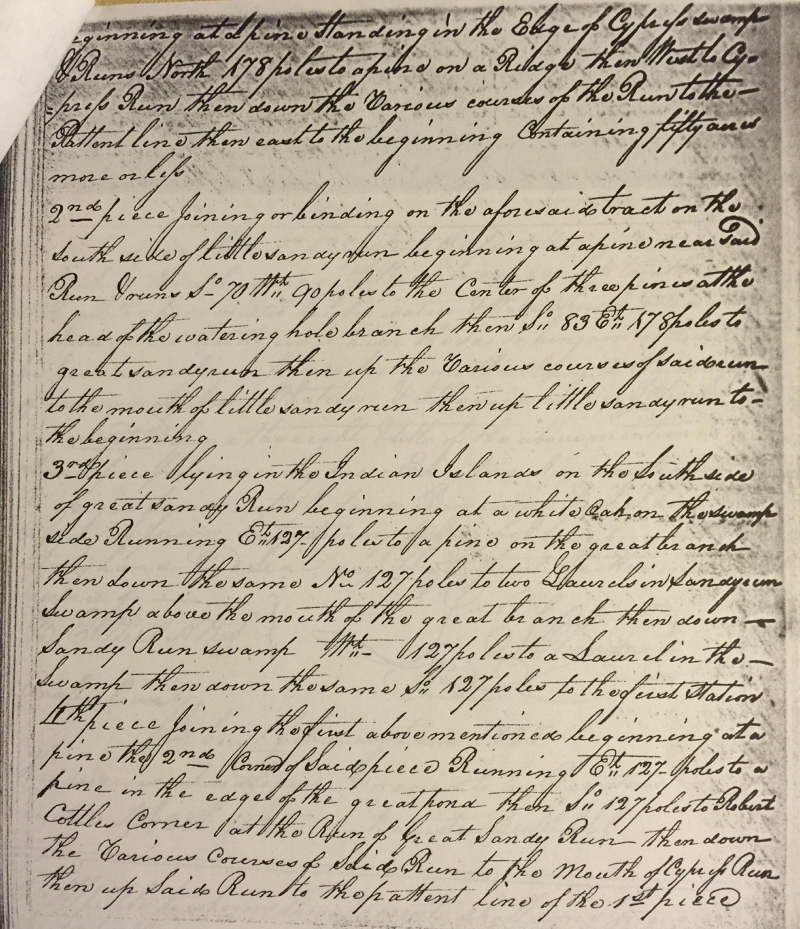 beginning at a pine standing in the Edge of Cypress swamp
& Runs North 178 poles to a pine on a Ridge then West to Cy-
press Run then down the Various courses of the Run to the
Pattent line then east to the beginning Containing fifty acres
more or less
2nd piece Joining or binding on the aforesaid tract on the
south side of little sandy run beginning at a pine near Said
Run & runs So 70 Wt 90 poles to the Center of three pines at the
head of the watering hole branch then So 83 Et 178 poles to
great sandy run then up the Various courses of said run
to the mouth of little sandy run then up little sandy run to
the beginning
3rd piece lying in the Indian Islands on the South side
of great sandy Run beginning at a white Oak on the swamp
side Running Et 127 poles to a pine on the great branch
then down the same No 127 poles to two Laurels in Sandy run
Swamp above the mouth of the great branch then down
Sandy Run swamp Wt 127 poles to a Laurel in the
Swamp then down the same So 127 poles to the first station
4th piece Joining the first above mentioned beginning at a
pine the 2nd Corner of Said piece Running Et 127 poles to a
pine in the edge of the great pond then So 127 poles to Robert
Cottles Corner at the Run of Great Sandy Run then down
the Various Courses of Said Run to the Mouth of Cypress Run
then up Said Run to the pattent line of the 1st piece